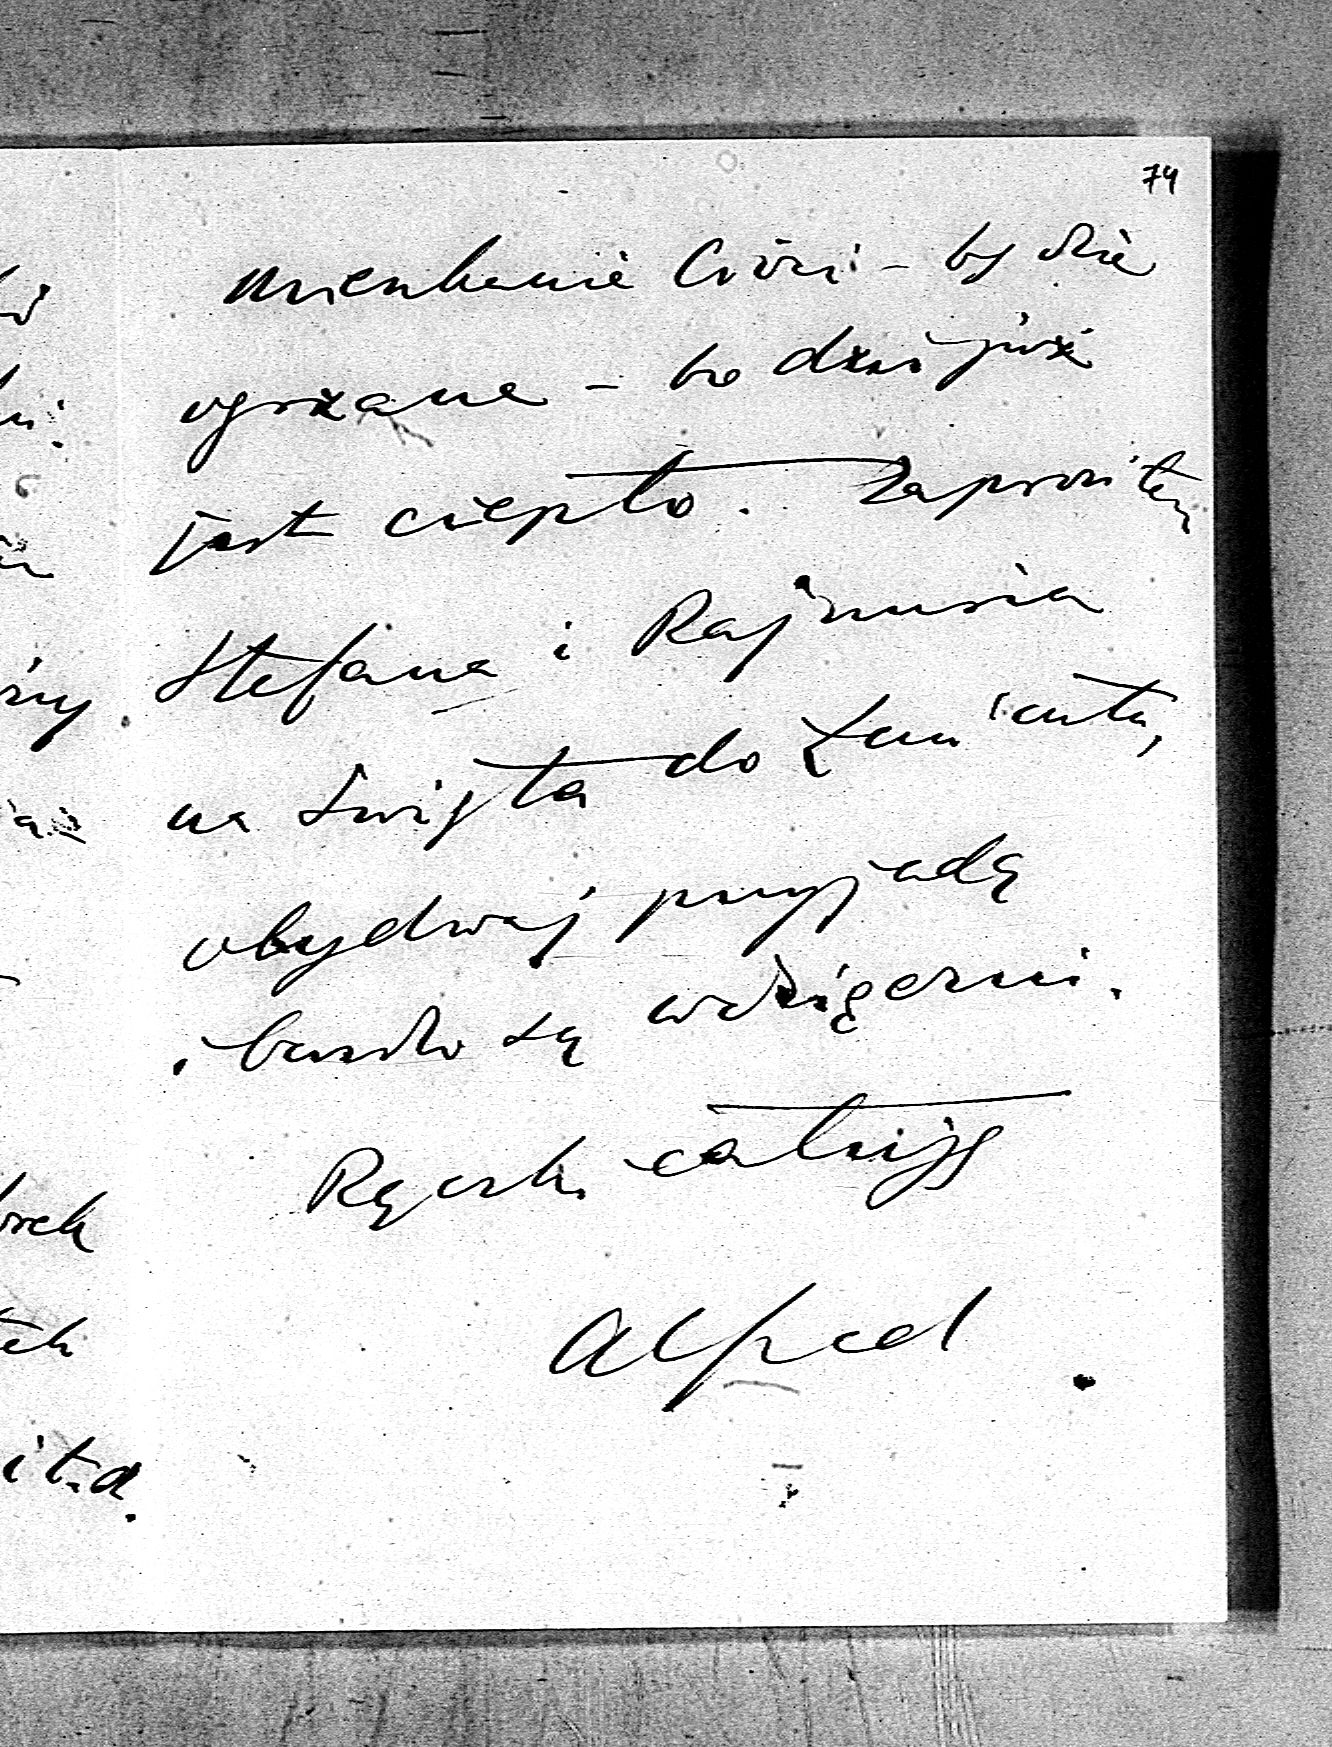 74
mieszkanie Cioci - będzie
ogrzane - bo dziś już
jest ciepło. Zaprosiłem
Stefana i Rajmunda
na święta do Łańcuta,
obydwaj przyjadą
i bardzo są wdzięczni.
Rączki całuję
Alfred
i t.d.